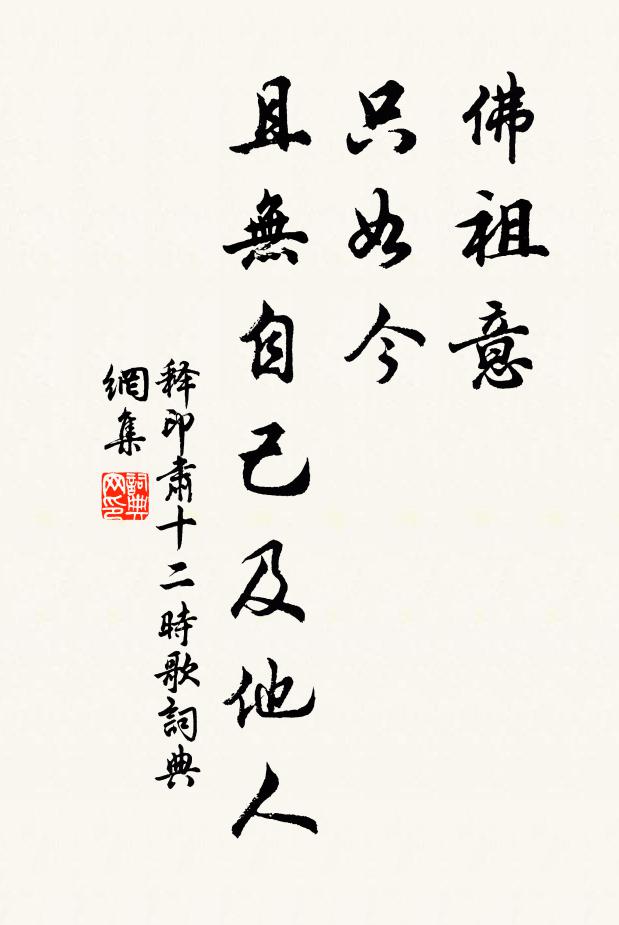 佛祖意
只如今
且無自己及他人
释印肃十二時歌詞典
網集
詞典网印